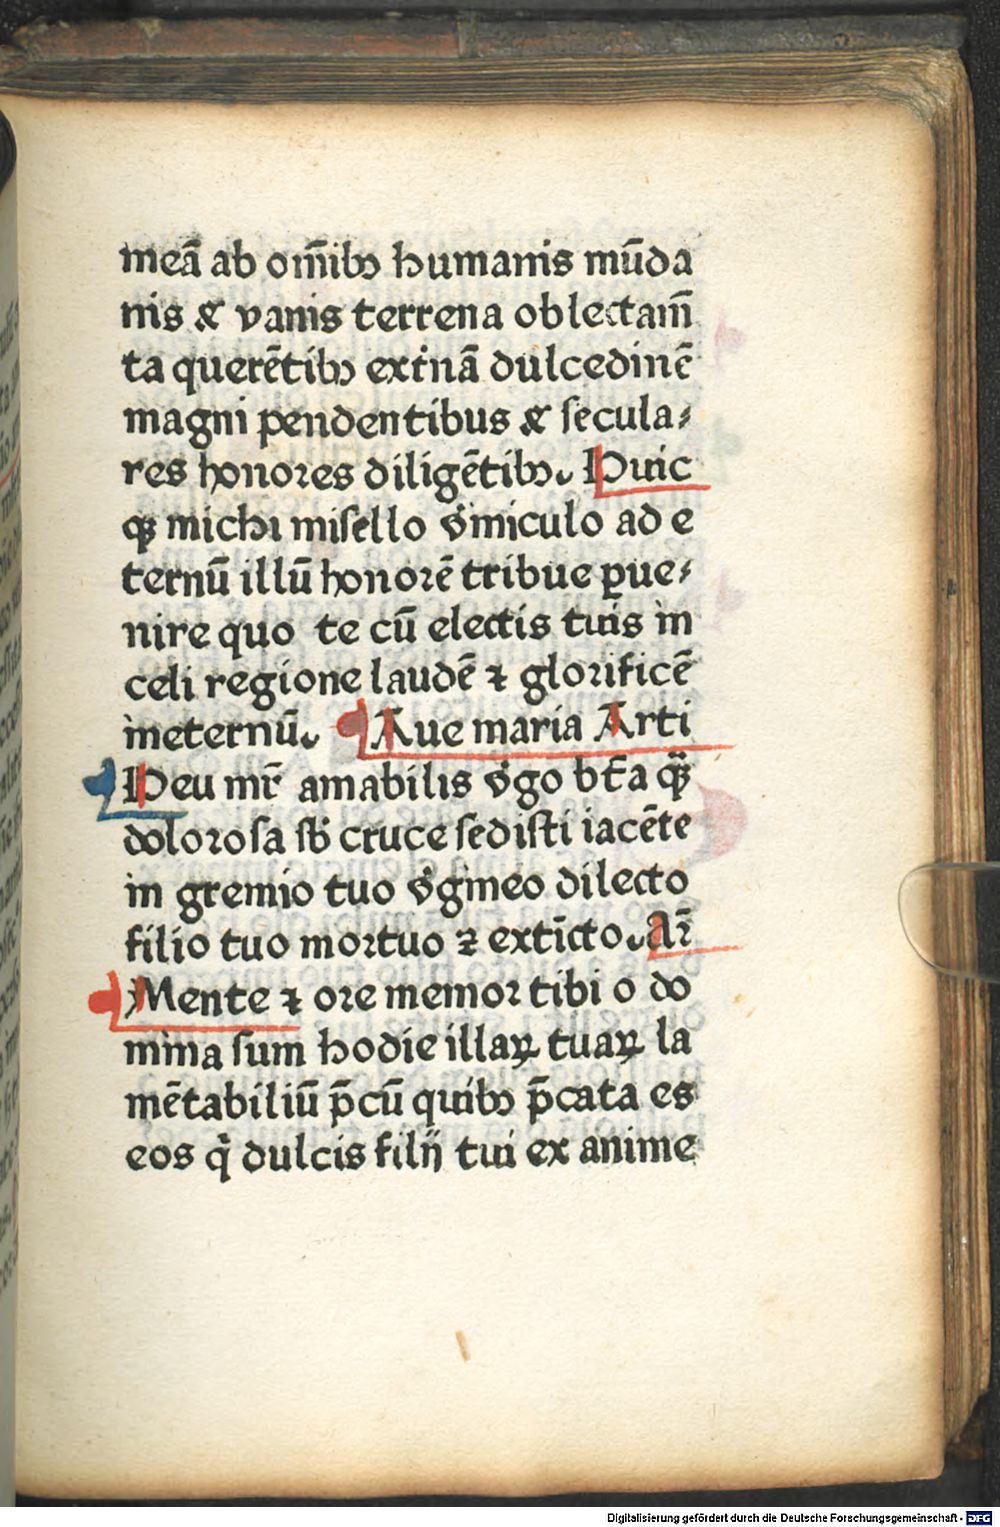 meā ab om̄ibꝫ humanis mūda
nis & vanis terrena oblectam̄
ta querētibꝫ ext̍nā dulcedinē
magni pendentibus & secula⸗
res honores diligētibꝫ. Huic
qꝫ michi misello v̍miculo ad e
ternū illū honorē tribue ꝑue⸗
nire quo te cū electis tuis in
celi regione laudē ⁊ glorificē
ineternū. Aue maria Arti
Heu mr̄ amabilis v̍go bt̄a ꝙ̄
dolorosa sb̄ cruce sedisti iacēte
in gremio tuo v̍gineo dilecto
filio tuo mortuo ⁊ extīcto. Ar̄
Mente ⁊ ore memor tibi o do
mina sum hodie illaꝝ tuaꝝ la
mētabiliū p̄cū quibꝫ p̄cata es
eos q̍ dulcis filij tui ex anime
Digitalisierung gefördert durch die Deutsche Forschungsgemeinschaft - DFG